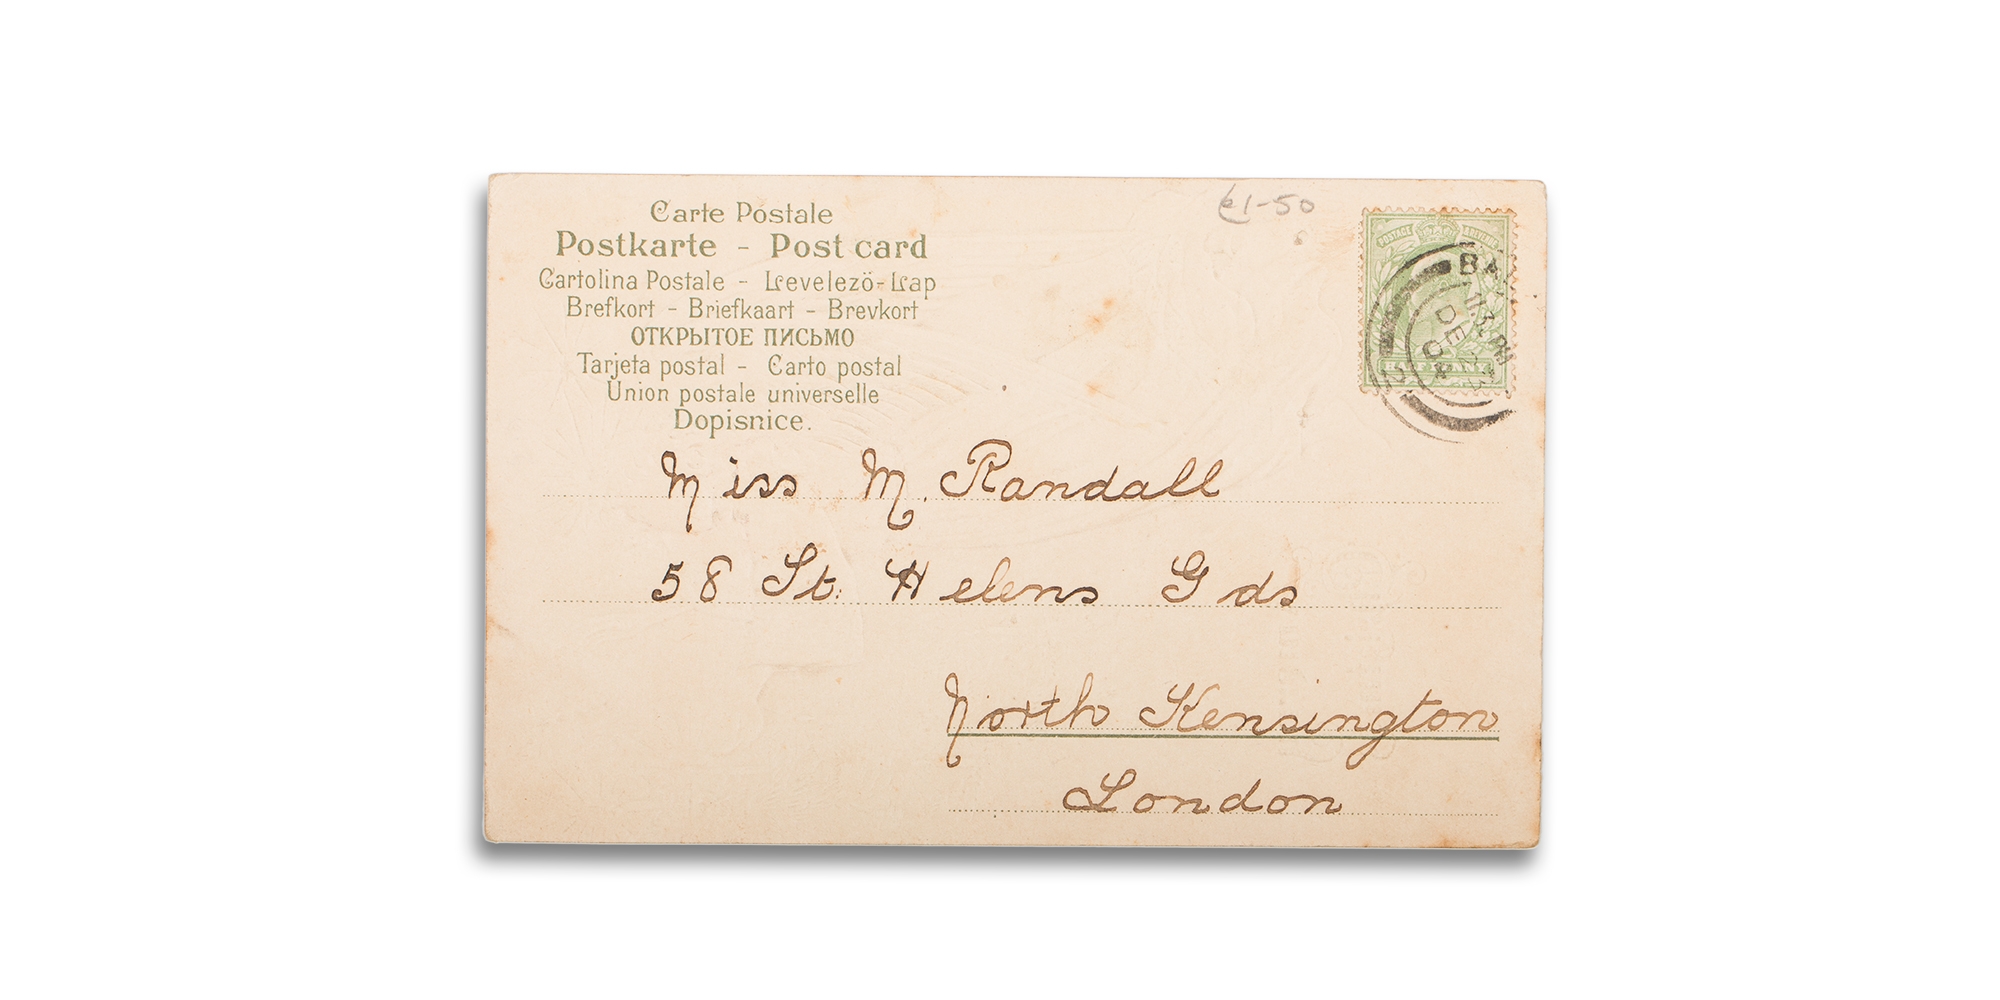 Carte Postale
Postkarte - Post card
Cartolina Postale - Levelezö-Lap
Brefkort - Briefkaart - Brevkort
ОТКРЫТОЕ ПИСЬМО
Tarjeta postal - Carto postal
Union postale universelle
Dopisnice.
£1-50
POSTAGE
DE 23
04
Miss M. Randall
58 St. Helens Gds
North Kensington
London